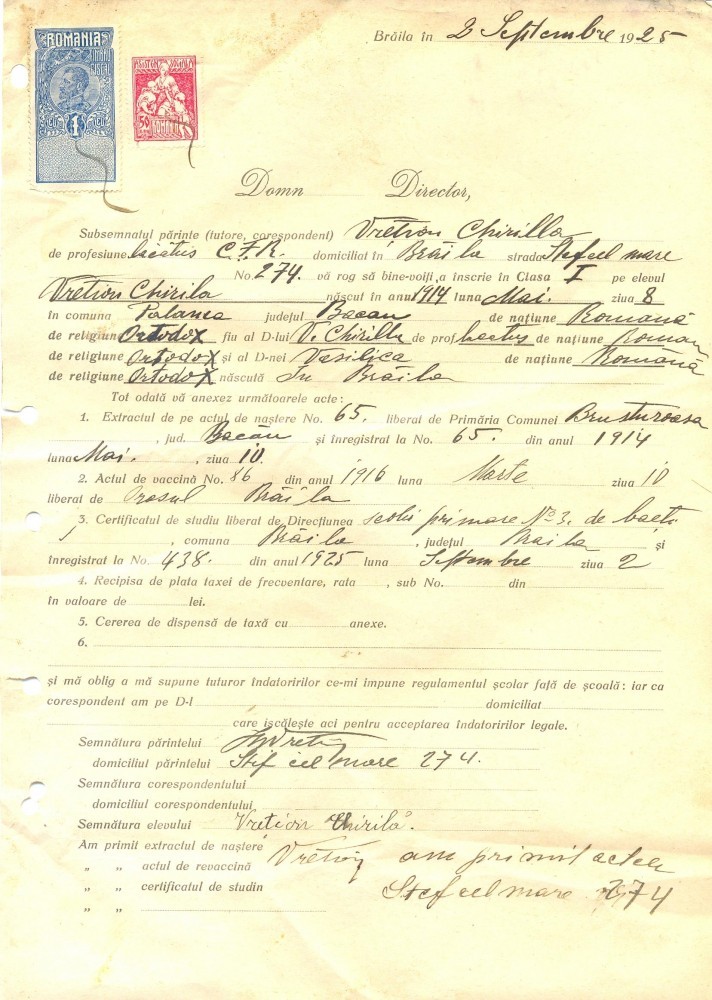 ROMANIA
TIMBRU
FISCAL
1
ASISTENTA SOCIALA
50
ROMANIA
Brăila în 2 Septembrie 1925
Domn Director,
Subsemnatul părinte (tutore, corespondent) Vretion Chirilla
de profesiune lăcătus C.F.R. domiciliat în Brăila strada Stef cel mare
No. 274. vă rog să bine-voiți, a înscrie în Clasa I pe elevul
Vretion Chirila născut în anul 1914 luna Mai. ziua 8
în comuna Palanca județul Bacau de națiune Romană
de religiune Ortodox fiu al D-lui V. Chirilla de prof. lacatus de națiune Roman
de religiune Ortodox și al D-nei Vasilica de națiune Romană
de religiune Ortodox născută In Brăila
Tot odată vă anexez următoarele acte :
1. Extractul de pe actul de naștere No. 65. liberat de Primăria Comunei Brusturoasa
, jud. Bacău și înregistrat la No. 65. din anul 1914
luna Mai. , ziua 10.
2. Actul de vaccină No. 86 din anul 1916 luna Marte ziua 10
liberat de Orasul Brăila
3. Certificatul de studiu liberat de Direcțiunea scolii primare No 3. de baeti
, comuna Brăila , județul Braila și
înregistrat la No. 438. din anul 1925 luna Septembre ziua 2
4. Recipisa de plata taxei de frecventare, rata , sub No. din
în valoare de lei.
5. Cererea de dispensă de taxă cu anexe.
6.
și mă oblig a mă supune tuturor îndatoririlor ce-mi impune regulamentul școlar față de școală : iar ca
corespondent am pe D-l domiciliat
care iscălește aci pentru acceptarea îndatoririlor legale.
Semnătura părintelui Vretion
domiciliul părintelui Stef cel mare 274.
Semnătura corespondentului
domiciliul corespondentului,
Semnătura elevului Vretion Chirilă.
Am primit extractul de naștere Vretion am primit actele
„ „ actul de revaccină
„ „ certificatul de studin Stef cel mare 274
„ „